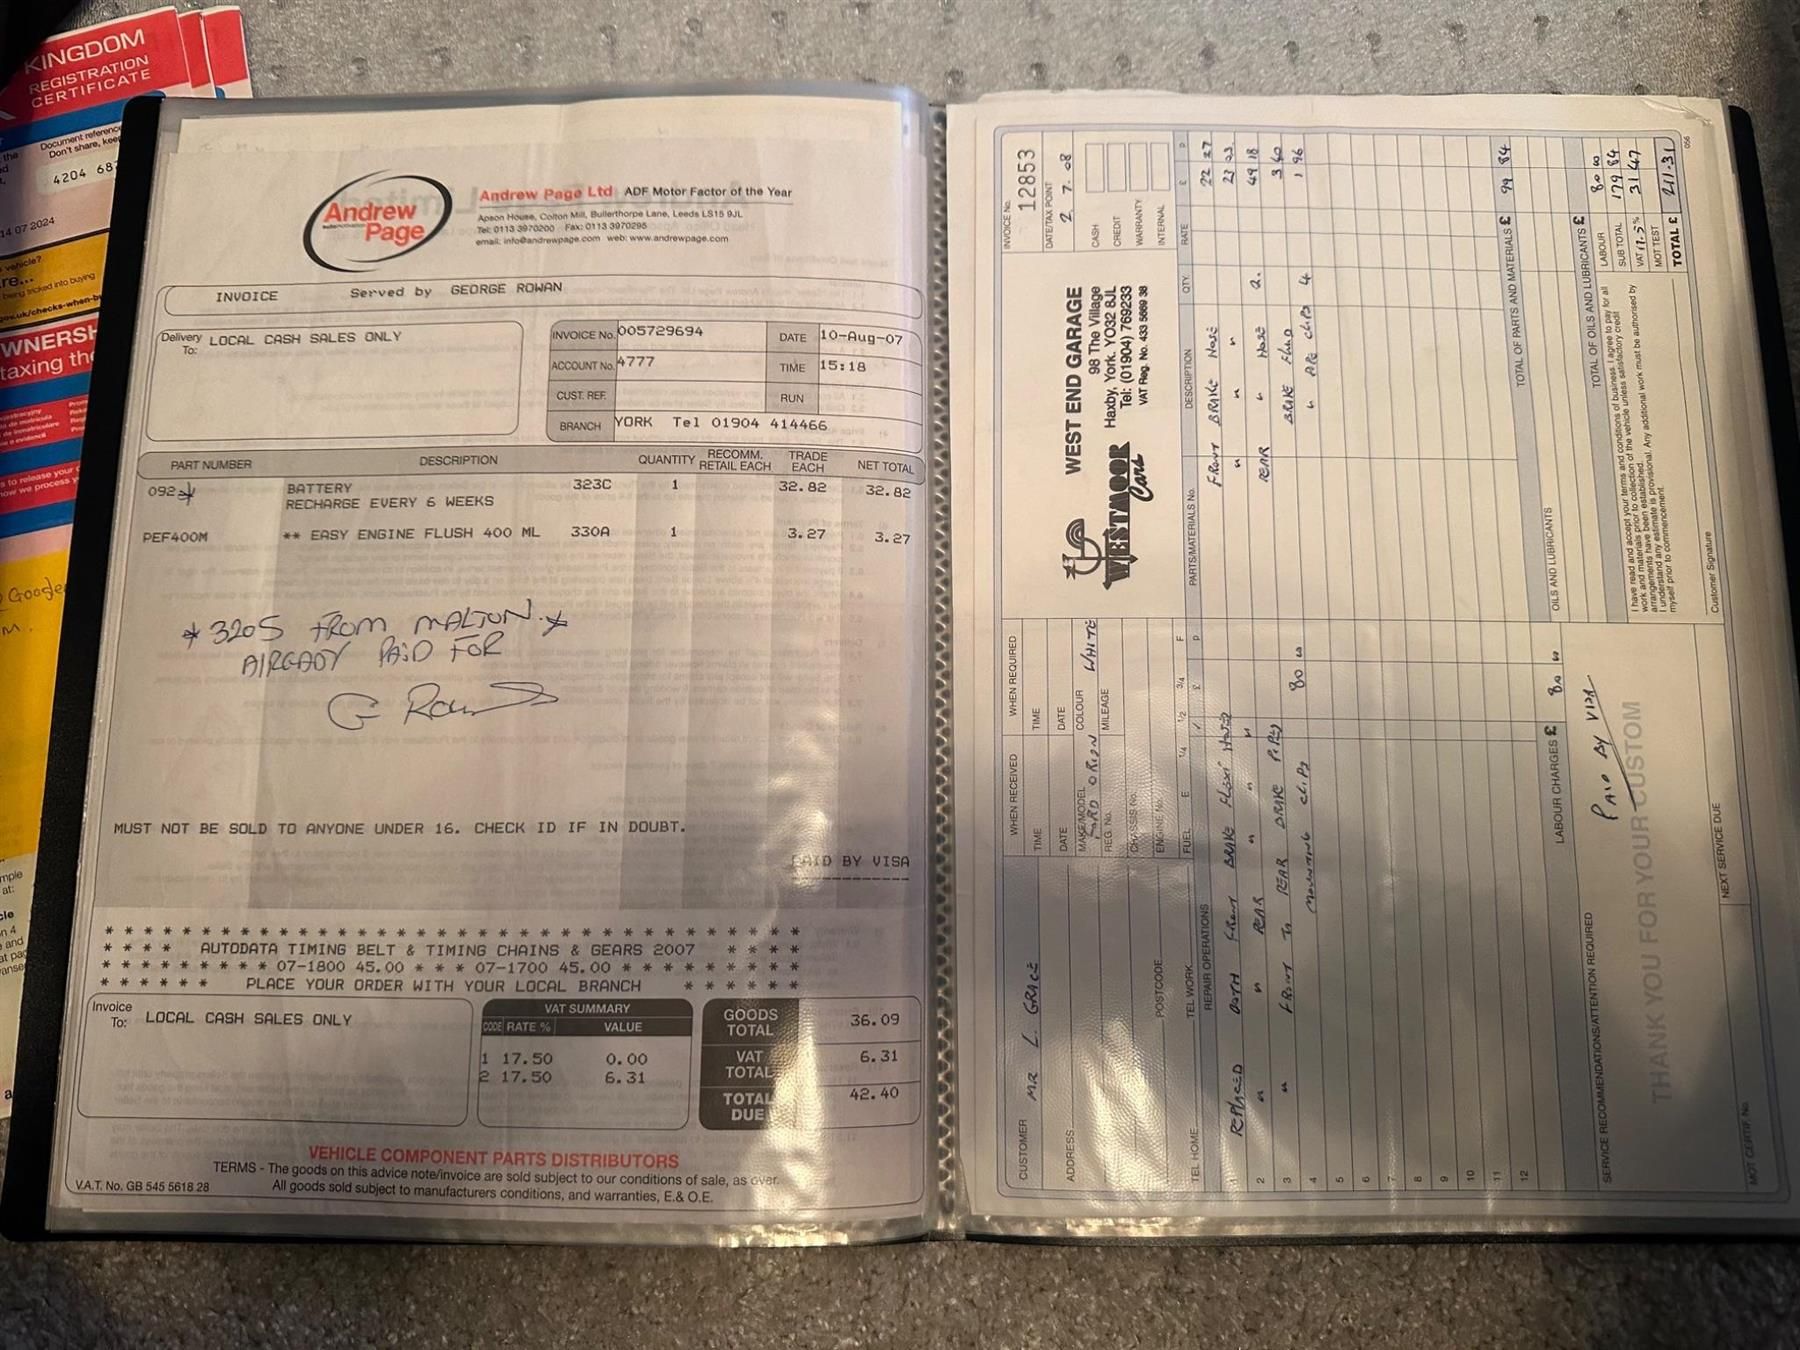 KINGDOM
REGISTRATION
CERTIFICATE
Document reference
Don't share, keep
4204 68
14 07 2024
vehicle?
being tricked into buying
gov.uk/checks-when-b
WNERSH
taxing the
Google
Andrew
Page
Andrew Page Ltd ADF Motor Factor of the Year
Apson House, Colton Mill, Bullerthorpe Lane, Leeds LS15 9JL
Tel: 0113 3970200 Fax: 0113 3970295
email: info@andrewpage.com web: www.andrewpage.com
INVOICE Served by GEORGE ROWAN
Delivery To: LOCAL CASH SALES ONLY
INVOICE No. 005729694 DATE 10-Aug-07
ACCOUNT No. 4777 TIME 15:18
CUST. REF. RUN
BRANCH YORK Tel 01904 414466
PART NUMBER DESCRIPTION QUANTITY RECOMM. RETAIL EACH TRADE EACH NET TOTAL
092 BATTERY 323C 1 32.82 32.82
RECHARGE EVERY 6 WEEKS
PEF400M ** EASY ENGINE FLUSH 400 ML 330A 1 3.27 3.27
* 320S FROM MALTON. *
AlREADY PAiD FOR
G Rowan
MUST NOT BE SOLD TO ANYONE UNDER 16. CHECK ID IF IN DOUBT.
PAID BY VISA
* * * * * * * * * * * * * * * * * * * * * * * * * * * * * * *
* * * * AUTODATA TIMING BELT & TIMING CHAINS & GEARS 2007 * * * *
* * * * * * * * 07-1800 45.00 * * * 07-1700 45.00 * * * * * * * *
* * * * * * PLACE YOUR ORDER WITH YOUR LOCAL BRANCH * * * * * *
Invoice To: LOCAL CASH SALES ONLY
VAT SUMMARY
CODE RATE % VALUE
1 17.50 0.00
2 17.50 6.31
GOODS TOTAL 36.09
VAT TOTAL 6.31
TOTAL DUE 42.40
VEHICLE COMPONENT PARTS DISTRIBUTORS
TERMS - The goods on this advice note/invoice are sold subject to our conditions of sale, as over.
All goods sold subject to manufacturers conditions, and warranties, E.& O.E.
V.A.T. No. GB 545 5618 28
WESTMOOR
Cars
WEST END GARAGE
98 The Village
Haxby, York. YO32 8JL
Tel: (01904) 769233
VAT Reg. No. 433 5669 38
INVOICE No. 12853
DATE/TAX POINT
2. 7. 08
CASH
CREDIT
WARRANTY
INTERNAL
CUSTOMER MR L. GRACE
ADDRESS
POSTCODE
TEL HOME TEL WORK
WHEN RECEIVED WHEN REQUIRED
TIME TIME
DATE DATE
MAKE/MODEL FORD ORION COLOUR WHITE
REG. No. MILEAGE
CHASSIS No.
ENGINE No.
FUEL E 1/4 1/2 3/4 F
REPAIR OPERATIONS £ P
REPLACED BOTH FRONT BRAKE FLEXI HOSES
2 " " REAR " " "
3 " FRONT TO REAR BRAKE PIPES
4 MOUNTING CLIPS 80 00
5
6
7
8
9
10
11
12
LABOUR CHARGES £ 80 00
PARTS/MATERIALS No. DESCRIPTION QTY. RATE £ P
FRONT BRAKE HOSE 22 27
" " " 23 23
REAR " HOSE 2. 49 18
BRAKE FLUID 3 60
" PIPE CLIPS 4 1 96
TOTAL OF PARTS AND MATERIALS £ 99 84
OILS AND LUBRICANTS
TOTAL OF OILS AND LUBRICANTS £
LABOUR 80 00
SUB TOTAL 179 84
VAT 17.5 % 31 47
MOT TEST
TOTAL £ 211.31
I have read and accept your terms and conditions of business. I agree to pay for all
work and materials prior to collection of the vehicle unless satisfactory credit
arrangements have been established.
I understand any estimate is provisional. Any additional work must be authorised by
myself prior to commencement.
Customer Signature
SERVICE RECOMMENDATIONS/ATTENTION REQUIRED
PAID BY VISA
THANK YOU FOR YOUR CUSTOM
MOT CERTIF. No. NEXT SERVICE DUE
056